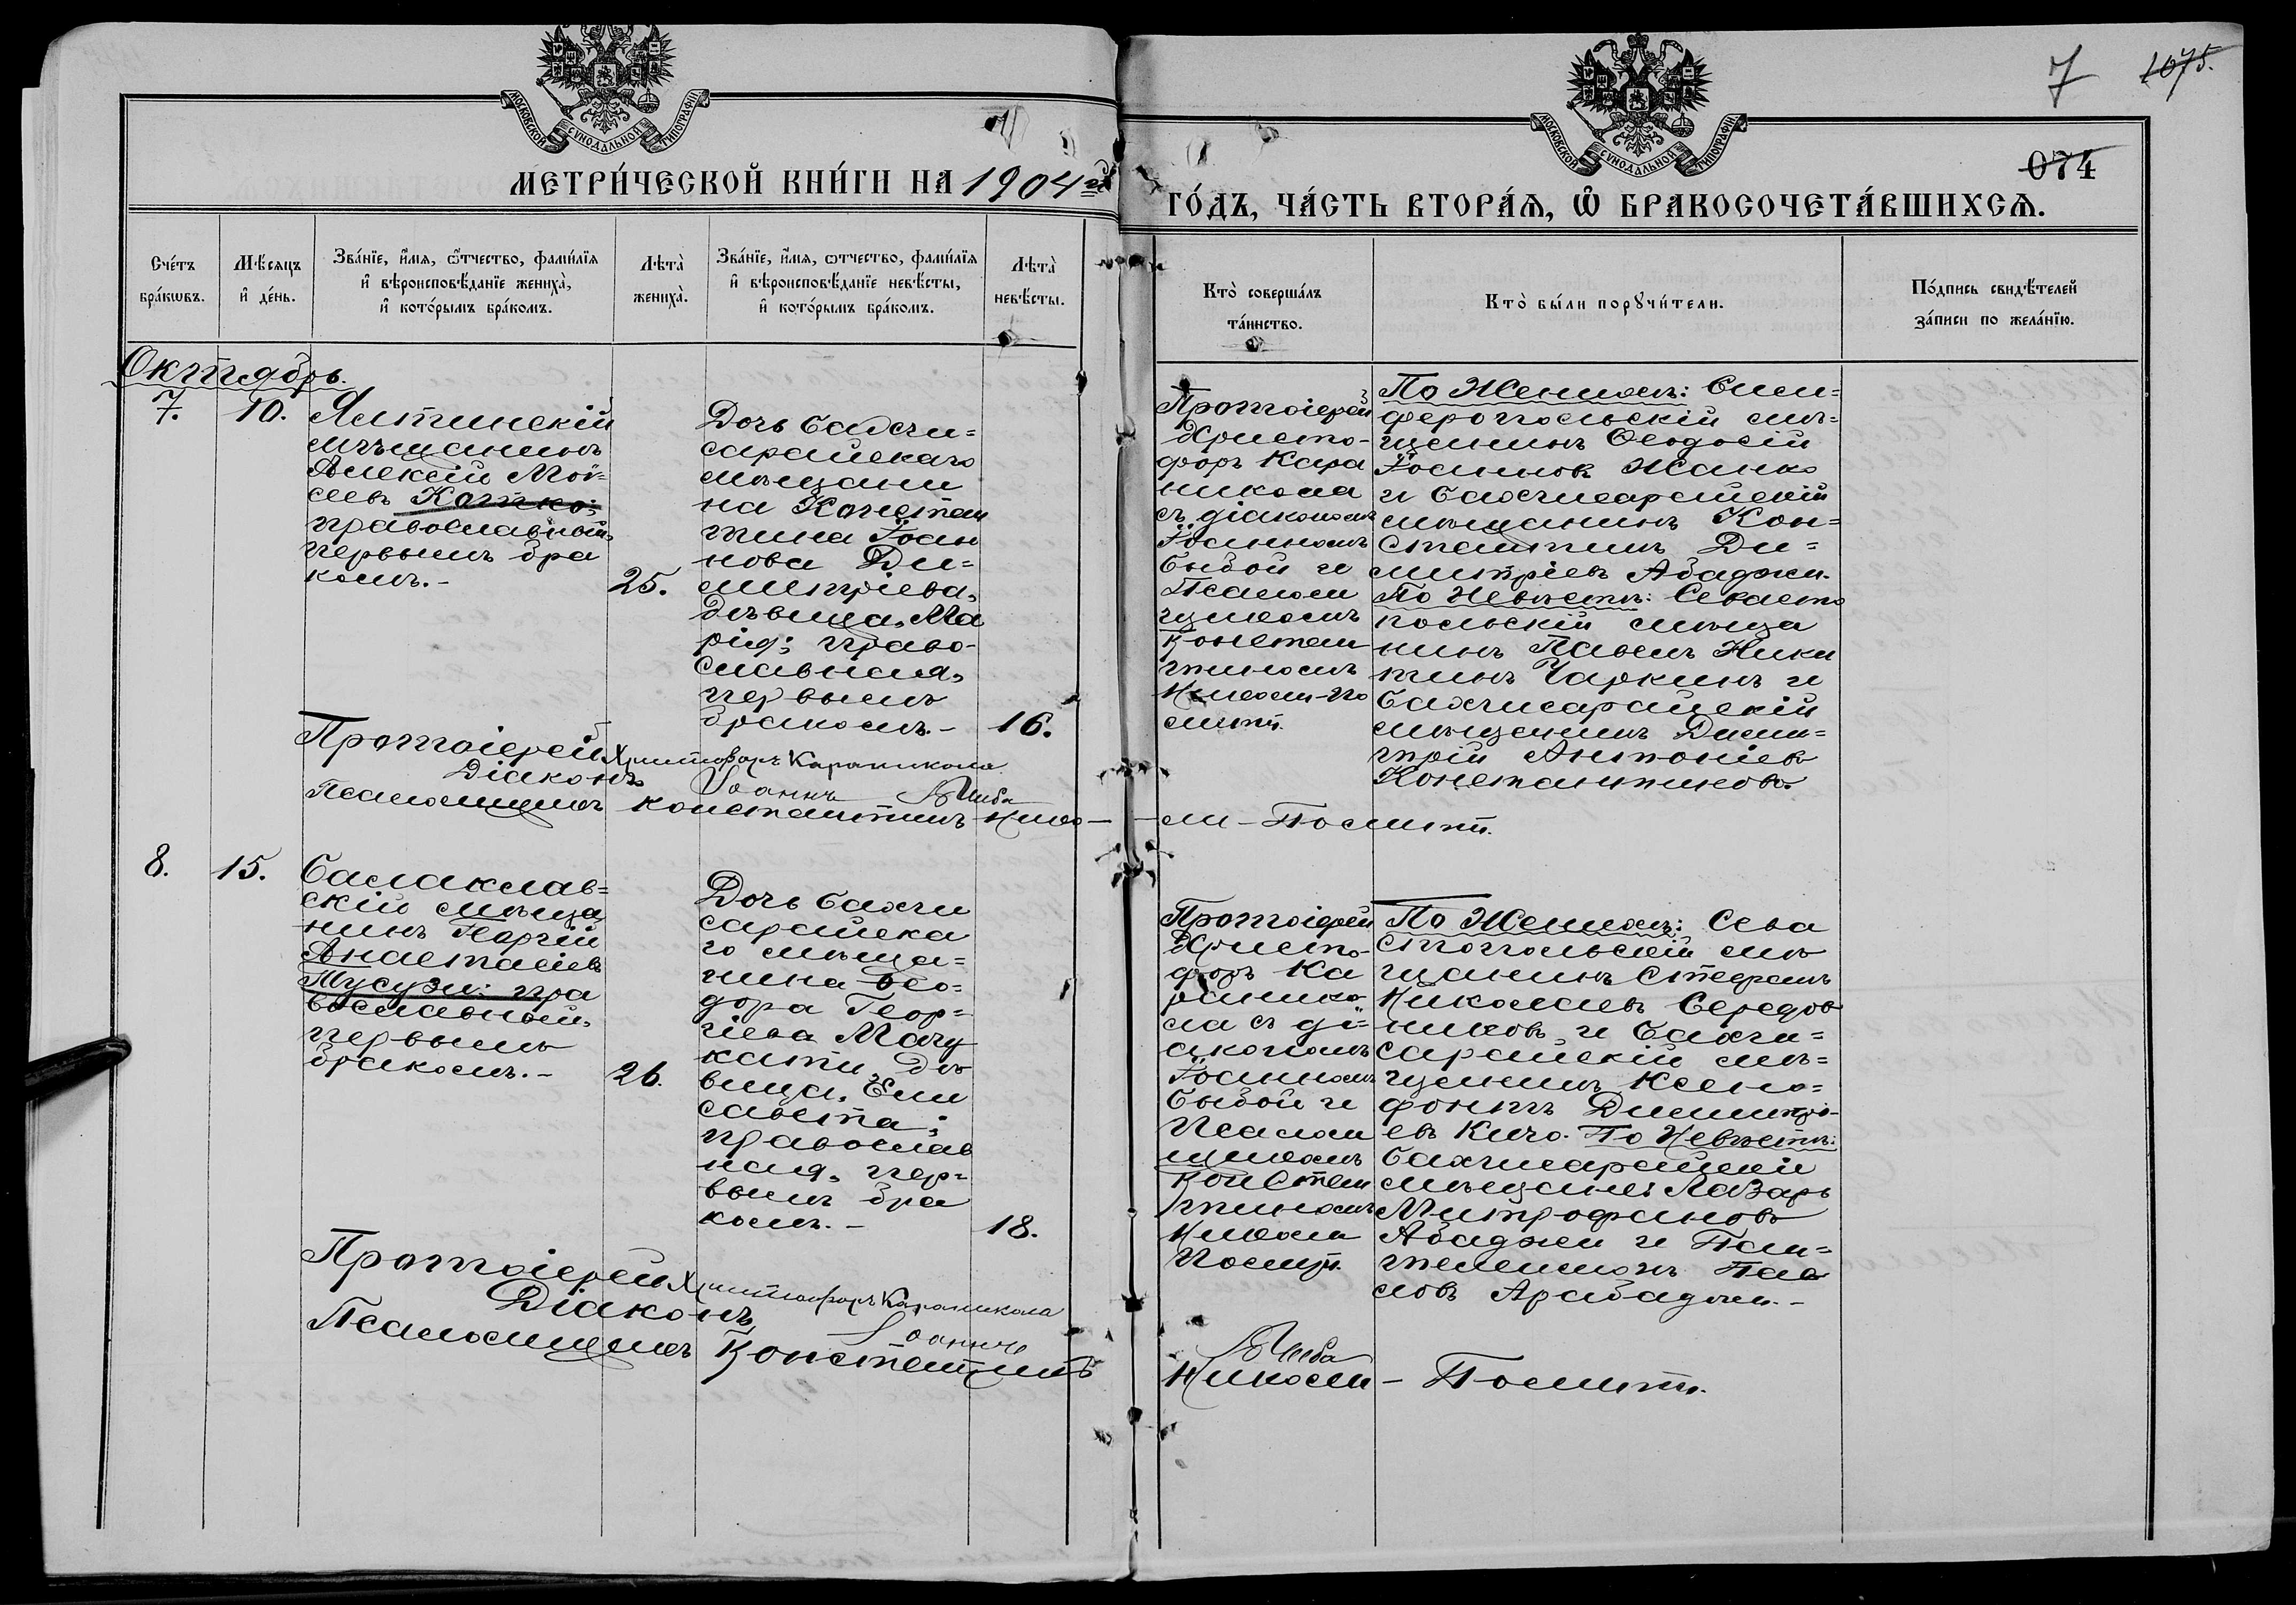 7 1075.
074
МОСКОВСКОЙ СѴНОДАЛЬНОЙ ТИПОГРАФІИ
МОСКОВСКОЙ СѴНОДАЛЬНОЙ ТИПОГРАФІИ
МЕТРИ́ЧЕСКОЙ КНИ́ГИ НА 1904 й
ГО́ДЪ, ЧА́СТЬ ВТОРА́Ѧ, Ѡ҆ БРАКОСОЧЕТА́ВШИХСѦ.
Сче́тъ
бра́кωвъ.
Мѣ́сяцъ
и҆ де́нь.
Зва́нїе, и҆́мя, ѻ҆́тчество, фами́лїя
и҆ вѣроисповѣ́данїе жениха̀,
и҆ кото́рымъ бра́комъ.
Лѣта̀
жениха̀.
Зва́нїе, и҆́мя, ѻтчество, фами́лїя
и҆ вѣроисповѣ́данїе невѣ́сты,
и҆ кото́рымъ бра́комъ.
Лѣта̀
невѣ́сты.
Кто̀ соверша́лъ
та́инство.
Кто̀ бы́ли порꙋчи́тели.
По́дпись свидѣ́телей
за́писи по жела́нїю.
Октябрь.
7.
10.
Ялтинскій
мѣщанинъ
Алексій Мои=
сеевъ Котко;
православный,
первымъ бра
комъ.-
25.
Дочь Бахчи=
сарайскаго
мѣщани
на Констан
тина Іоан
нова Ди=
митріева,
дѣвица, Ма
рія; право-
славная,
первымъ
бракомъ.-
16.
Протоіерей
Христо-
форъ Кара
никола
съ діакономъ
Іоанномъ
Бибой и
Псалом
щикомъ
Констан
тиномъ
Николи-По
лити.
По Женихѣ: Сим=
феропольскій мѣ=
щанинъ Ѳеодосій
Іоанновъ Жанко
и Бахчисарайскій
мѣщанинъ Кон=
стантинъ Ди=
митріевъ Абаджи.
По Невѣстѣ: Севасто
польскій мѣща
нинъ Павелъ Ники
тинъ Чаркинъ и
Бахчисарайскій
мѣщанинъ Дими=
трій Антоніевъ
Константиновъ.
Протоіерей Христофоръ Караникола
Діаконъ Іоаннъ Биба
Псаломщикъ Константинъ Нико-ли-Полити.
8.
15.
Балаклав=
скій мѣща
нинъ Георгій
Анастасіевъ
Тусузи: пра
вославный,
первымъ
бракомъ.-
26.
Дочь Бахчи
сарайска
го мѣща=
нина Ѳео=
дора Геор=
гіева Мачу
кати, дѣ
вица, Ели
савета;
православ
ная, пер=
вымъ бра
комъ.-
18.
Протоіерей
Христо-
форъ Ка
ранико
ла съ ді=
акономъ
Іоанномъ
Бибой и
Псалом
щикомъ
Констан
тиномъ
Николи
Полити.
По Женихѣ: Сева
стопольскій мѣ
щанинъ Стефанъ
Николаевъ Середов
никовъ и Бахчи=
сарайскій мѣ=
щанинъ Ксено=
фонтъ Димитрі-
евъ Кичо. По Невѣстѣ:
Бахчисарайскіе
мѣщане: Лазарь
Митрофановъ
Абаджи и Пан=
телеимонъ Пав
ловъ Арабаджи.-
Протоіерей Христофоръ Караникола
Діаконъ Іоаннъ Биба
Псаломщикъ Константинъ Николи-Полити.